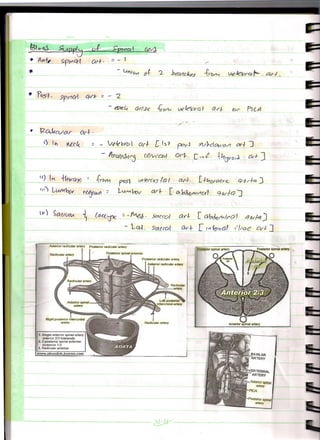 Blood Supply of Spinal Cord
• Ant. spinal art. = - 1
- Union of 2 branches from vertebral art.
• Post. spinal art = - 2
- each arise from vertebral art or PICA
• Radicular art.
i) In Neck : - Vertebral art [ 1st part subclavian art ]
- Ascending cervical art. [ inf. thyroid art ]
ii) In thorax : from post intercostal art. [ thoracic aorta ]
iii) Lumbar region : Lumbar art [ abdominal aorta ]
iv) Sacrum & Coccyx : - Med. sacral art [ abdominal aorta ]
- Lat. sacral art [ internal iliac art ]
Anterior radicular artery
Posterior radicular artery
Radicular artery
Posterior spinal arteries
Posterior radicular artery
Anterior radicular artery
Radicular artery
Radicular artery
Anterior spinal artery
Left posterior intercostal artery
Right posterior intercostal artery
Radicular artery
AORTA
1. Single anterior spinal artery
2. Radicular arteries
Posterior spinal artery
Anterior 2/3
Anterior spinal artery
BASILAR ARTERY
VERTEBRAL ARTERY
Anterior spinal artery
PICA
Posterior spinal artery